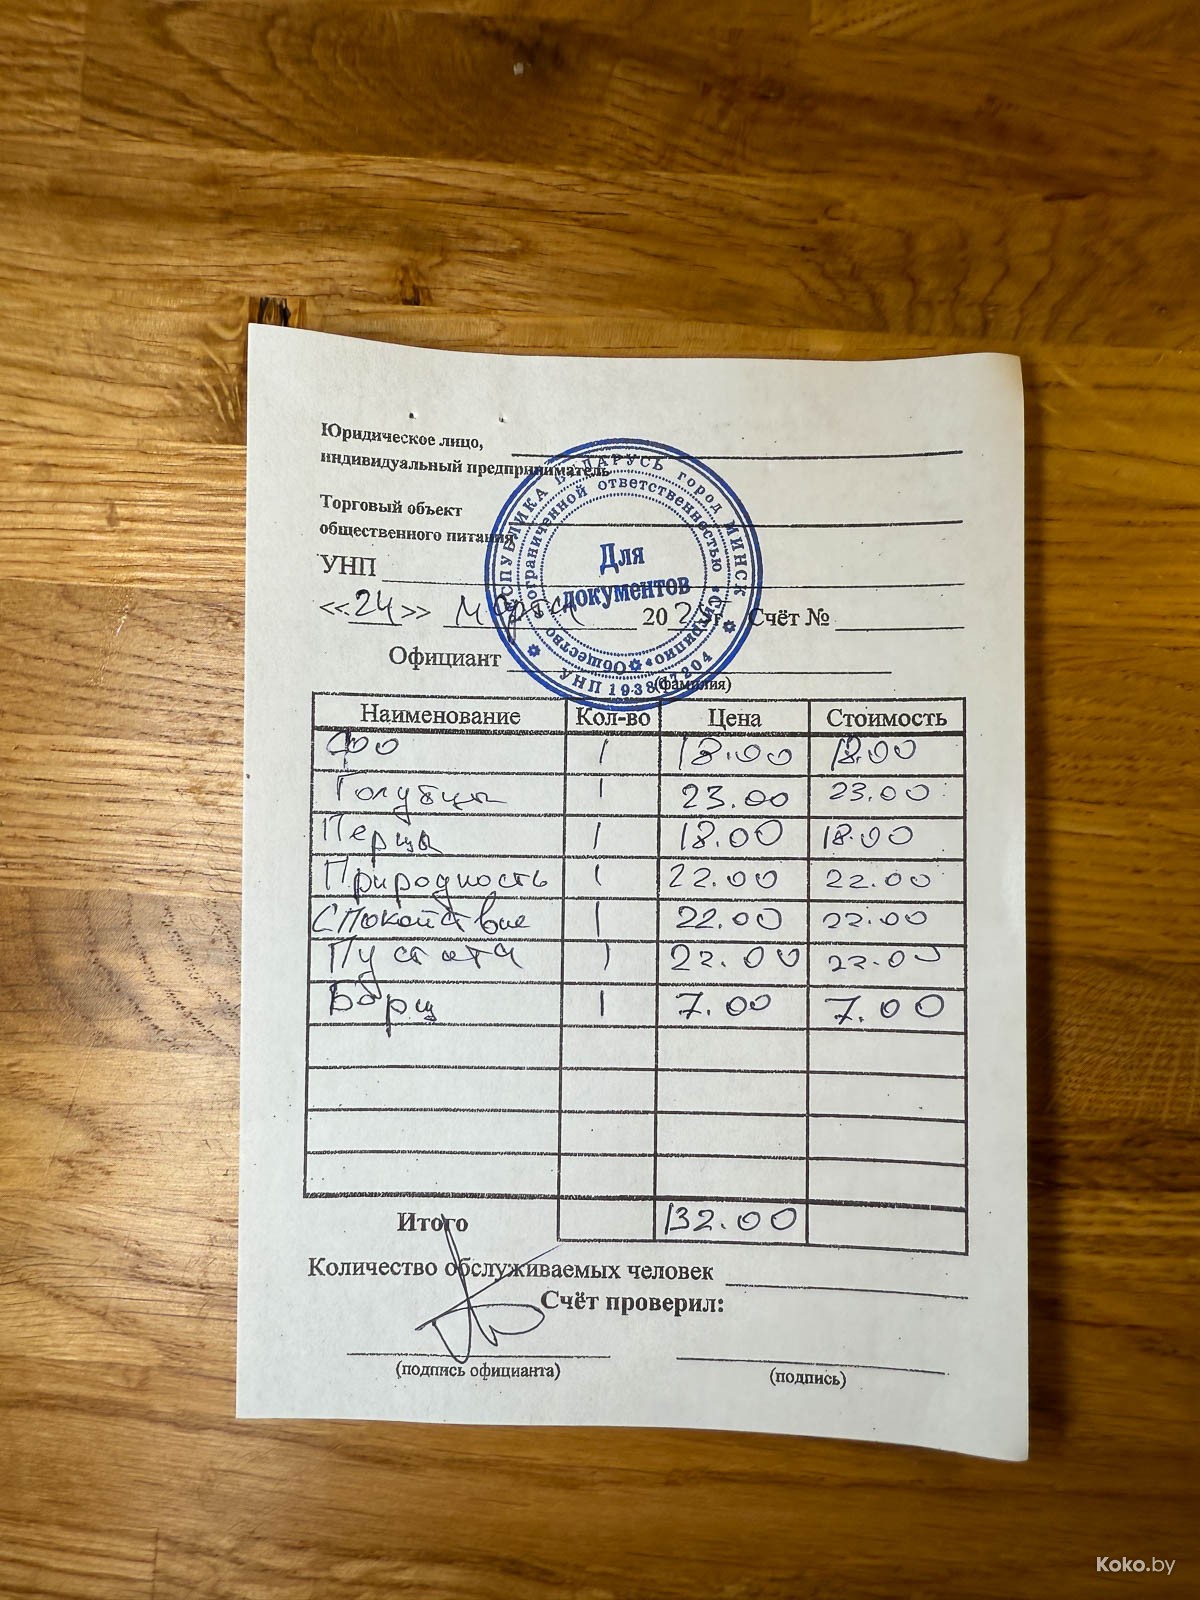 Юридическое лицо,
индивидуальный предприниматель
Торговый объект
общественного питания
УНП
РЕСПУБЛИКА БЕЛАРУСЬ город МИНСК
Общество с ограниченной ответственностью «Ситрипио»
Для
документов
УНП
«24» Марта 202 г. Счёт №
Официант
(фамилия)
Наименование Кол-во Цена Стоимость
Фо 1 18.00 18.00
Голубцы 1 23.00 23.00
Перцы 1 18.00 18.00
Природность 1 22.00 22.00
Спокойствие 1 22.00 22.00
Пустота 1 22.00 22.00
Борщ 1 7.00 7.00
Итого 132.00
Количество обслуживаемых человек
Счёт проверил:
(подпись официанта) (подпись)
Koko.by